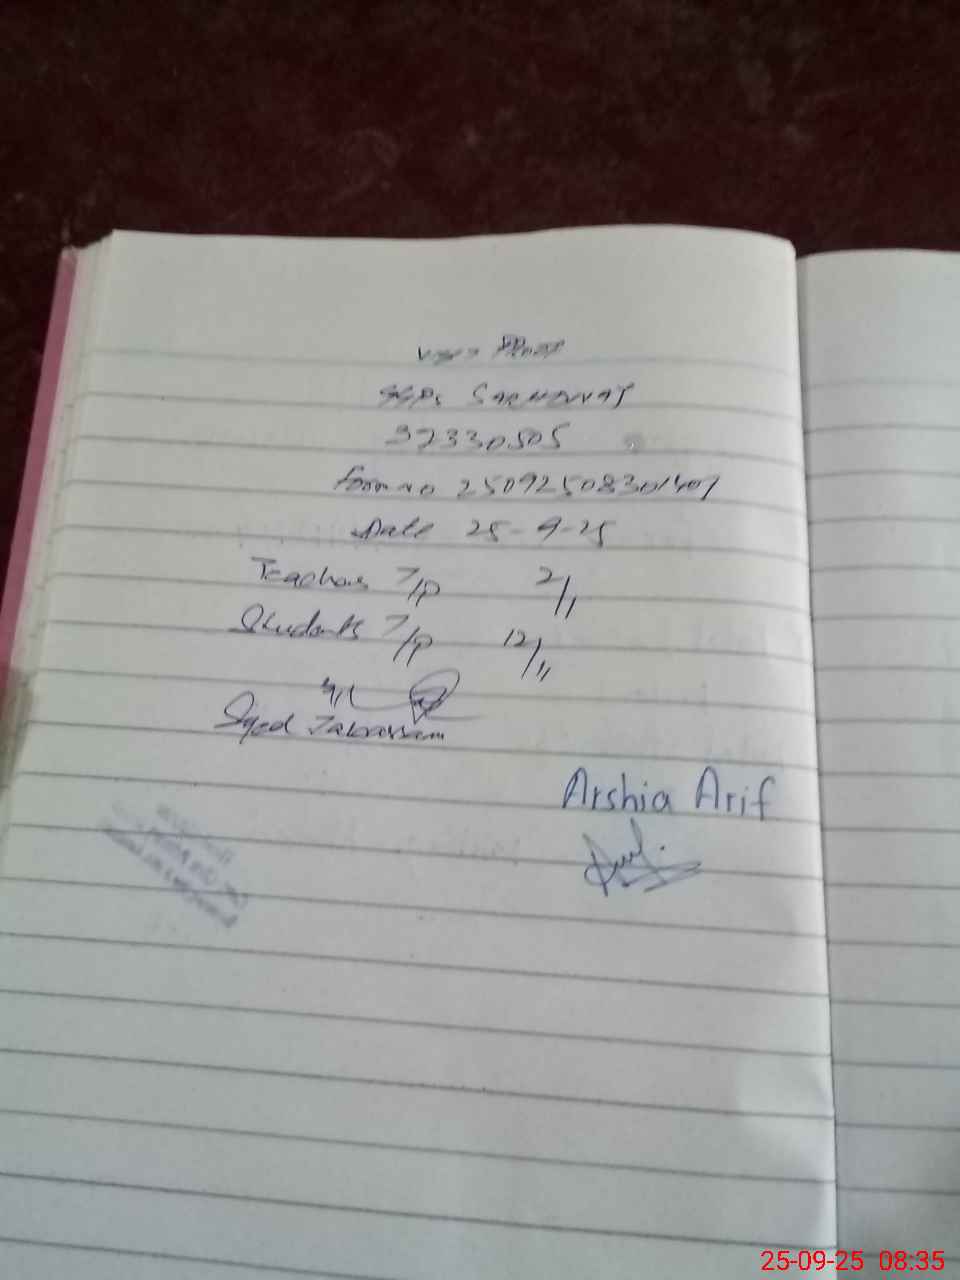 Visit Proof
GGPS
37330505
Form no 25092508301407
Date 25-9-25
Teachers T/P 2/1
Students T/P 12/11
Syed Tabassam
Arshia Arif
25-09-25 08:35